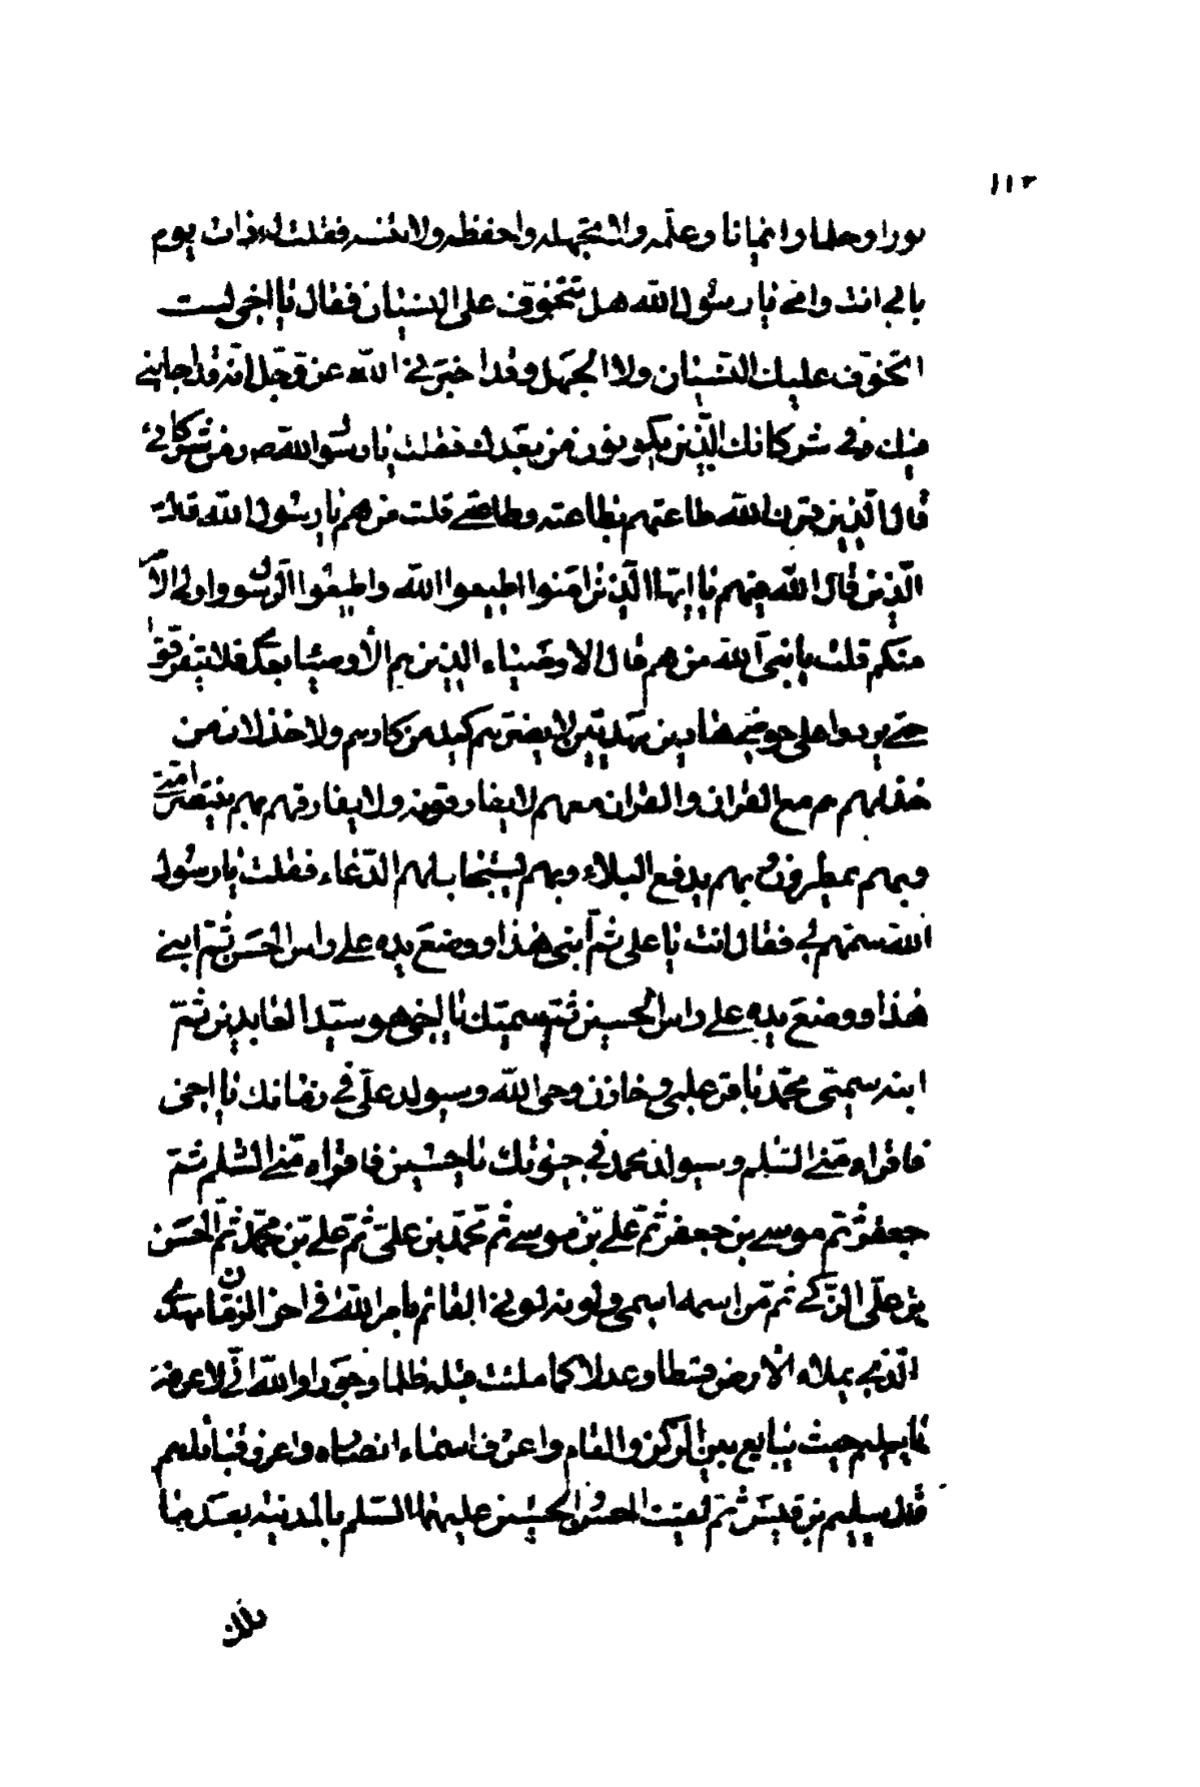 ١١٢
نورا وحلما وايمانا وعلمه ولا تجهله واحفظه ولا تنسه فقلت له ذات يوم
بابي انت وامي يا رسول الله هل تتخوف على النسيان فقال يا اخي لست
اتخوف عليك النسيان ولا الجهل وقد اخبرني الله عز وجل انه قد اجابني
فيك وفي شركائك الذين يكونون من بعدك فقلت يا رسول الله ص ومن شركائي
قال الذين قرن الله طاعتهم بطاعته وطاعتي قلت من هم يا رسول الله قال
الذين قال الله فيهم يا ايها الذين امنوا اطيعوا الله واطيعوا الرسول واولي الامر
منكم قلت يا نبي الله من هم قال الاوصياء الذين هم الأوصياء بعدي فلا يتفرقوا
حتى يردوا على حوضي هادين مهديين لا يضرهم كيد من كادهم ولا خذلان من
خذلهم هم مع القرآن والقرآن معهم لا يفارقونه ولا يفارقهم بهم ينتصر امتي
وبهم يمطرون وبهم يدفع البلاء وبهم يستجاب لهم الدعاء فقلت يا رسول
الله سمهم لي فقال انت يا علي ثم ابني هذا ووضع يده على راس الحسن ثم ابني
هذا ووضع يده على راس الحسين ثم سميك يا اخي هو سيد العابدين ثم
ابنه سميي محمد باقر علمي وخازن وحي الله وسيولد علي في زمانك يا اخي
فاقراه مني السلم وسيولد محمد في حيوتك يا حسين فاقراه مني السلم ثم
جعفر ثم موسى بن جعفر ثم علي بن موسى ثم محمد بن علي ثم علي بن محمد ثم الحسن
بن علي الزكي ثم من اسمه اسمي ولونه لوني القائم بامر الله في اخر الزمان مهدي
الذي يملاء الارض قسطا وعدلا كما ملئت قبله ظلما وجورا والله اني لاعرفه
يا سليم حيث يبايع بين الركن والمقام واعرف اسماء انصاره واعرف قبائلهم
قال سليم بن قيس ثم لقيت الحسن والحسين عليهما السلم بالمدينة بعد ما
ملك